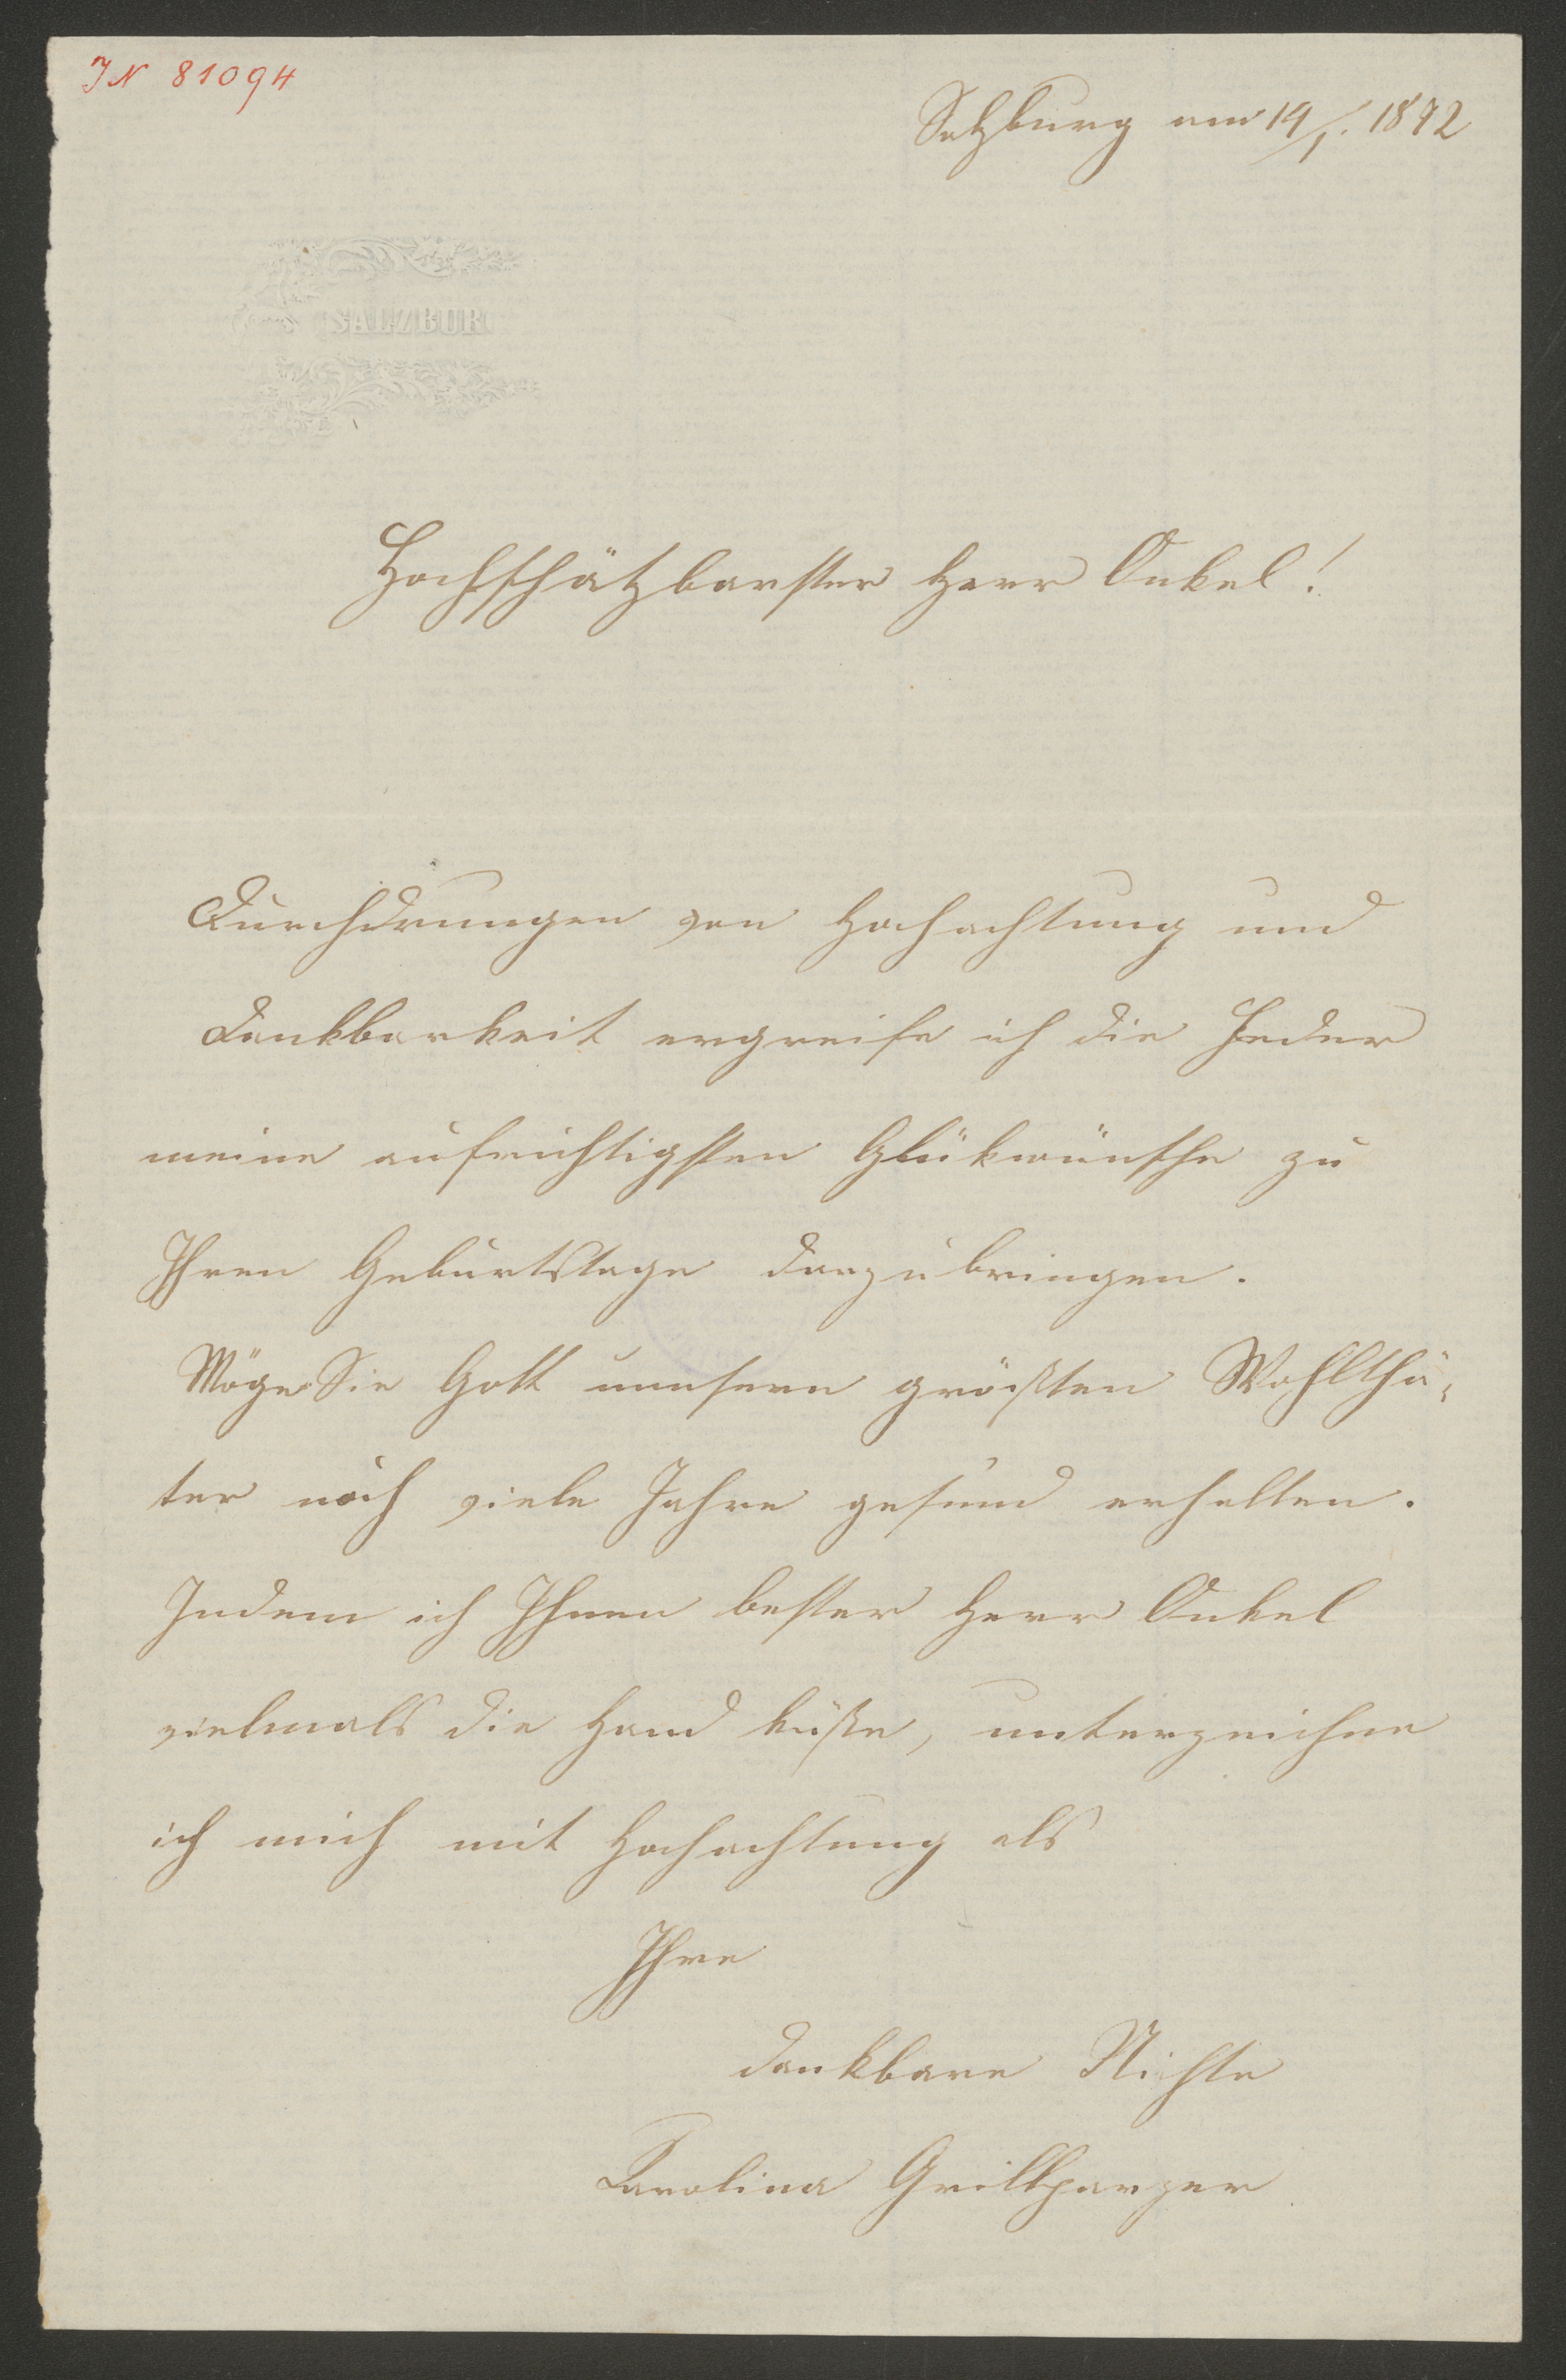 JN 81094
Salzburg am 14/1. 1872
SALZBURG
Hochschätzbarster Herr Onkel!
Durchdrungen von Hochachtung und
Dankbarkeit ergreife ich die Feder
meine aufrichtigsten Glükwünsche zu
Ihren Geburtstage darzubringen.
Möge Sie Gott unnsern größten Wohlthä-
ter noch viele Jahre gesund erhalten.
Indem ich Ihnen bester Herr Onkel
vielmals die Hand küße, unterzeichne
ich mich mit Hochachtung als
Ihre
dankbare Nichte
Karolina Grillparzer